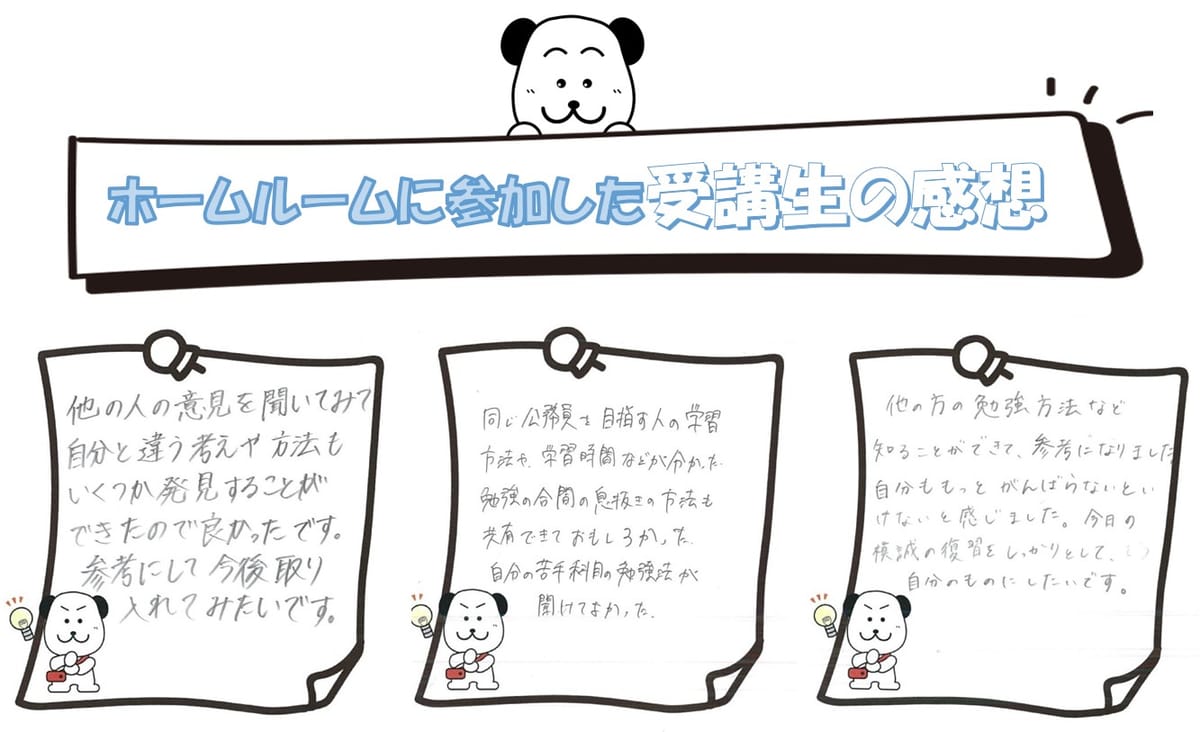 ホームルームに参加した受講生の感想
他の人の意見を聞いてみて
自分と違う考えや方法も
いくつか発見することが
できたので良かったです。
参考にして今後取り
入れてみたいです。
同じ公務員を目指す人の学習
方法や、学習時間などが分かった.
勉強の合間の息抜きの方法も
共有できておもしろかった.
自分の苦手科目の勉強法が
聞けてよかった.
他の方の勉強方法など
知ることができて、参考になりました
自分ももっとがんばらないとい
けないと感じました。今日の
模試の復習をしっかりとして、
自分のものにしたいです。